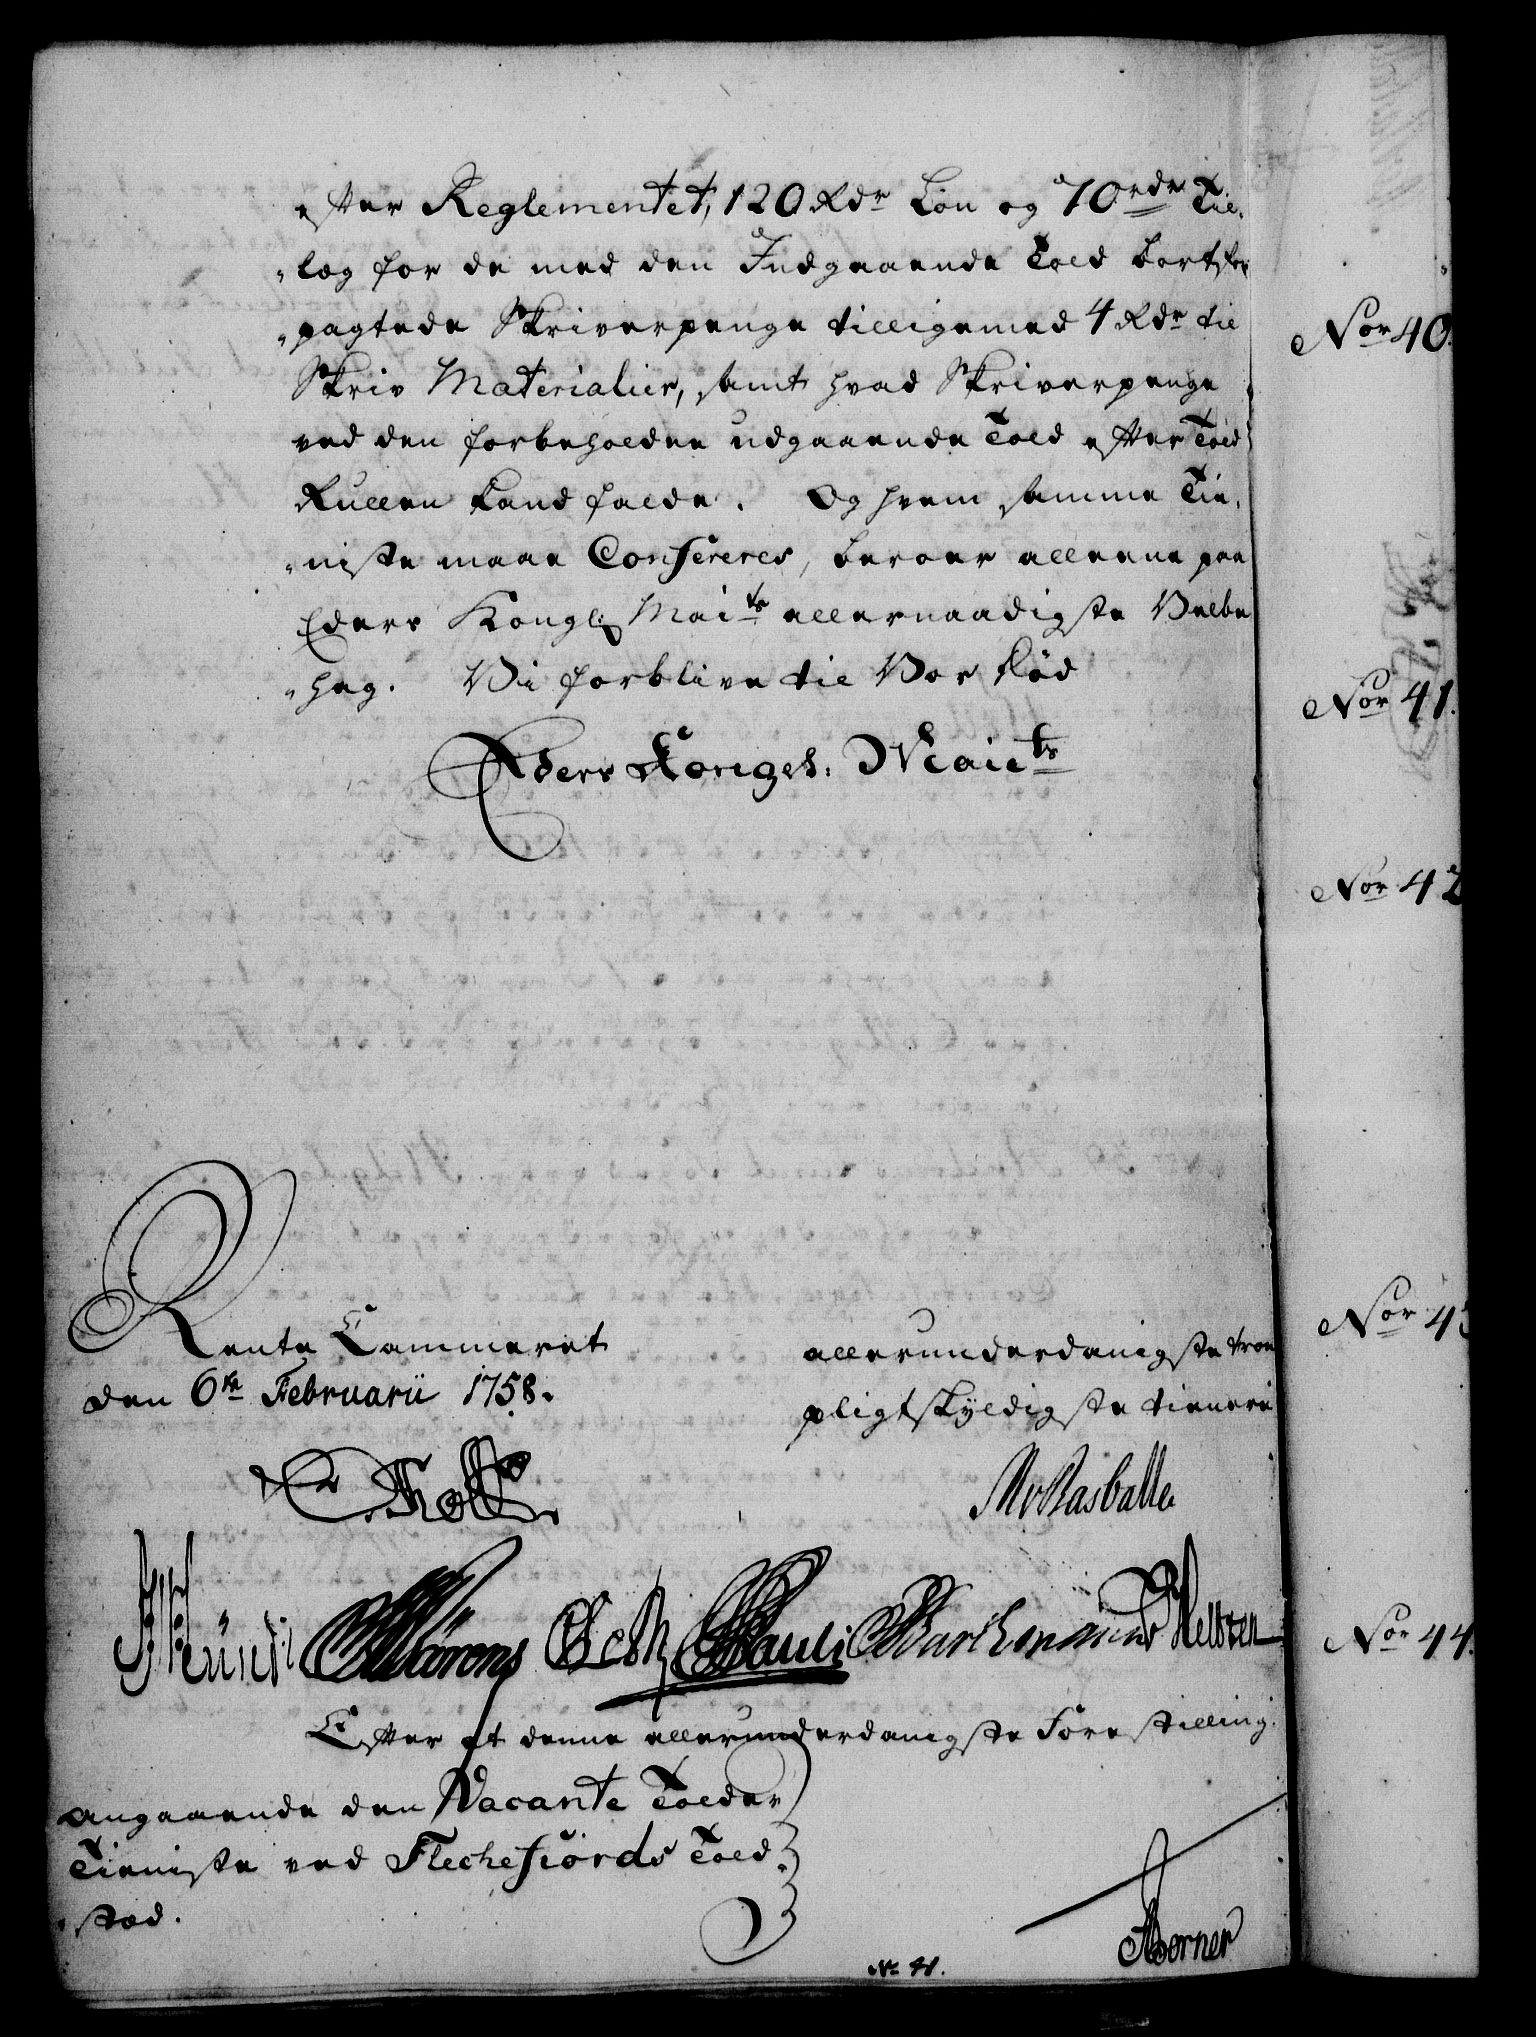 efter Reglementet, 120 Rdr Løn og 70 rdr Til,
"læg for de med den Indgaaende Told bortfor
"pagtede Skriverpenge tilligemed 4 Rdr til
Skriv Materialier, samt hvad Skriverpenge
ved den forbeholdne udgaaende Told efter Told
Rullen kand falde. Og hvem samme Tie,
"niste maae Confereres, beroer alleene paa
Eders Kongl: Maits allernaadigste Velbe
"hag. Vi forblive til Vor død
Eders Kongel. Maiets
Rente Cammeret
den 6te Februarii 1758.
allerunderdanigste troe
pligtskyldigste tienere
Holst
Pauli Barthomæus Heltzen
Efter at denne allerunderdanigste Forestilling
angaaende den Vacante Tolder
Tieniste ved Flechefiords Told,
"stæd.
Børner
No 41.
Nor 40.
Nor 41.
Nor 42
Nor 43
Nor 44.